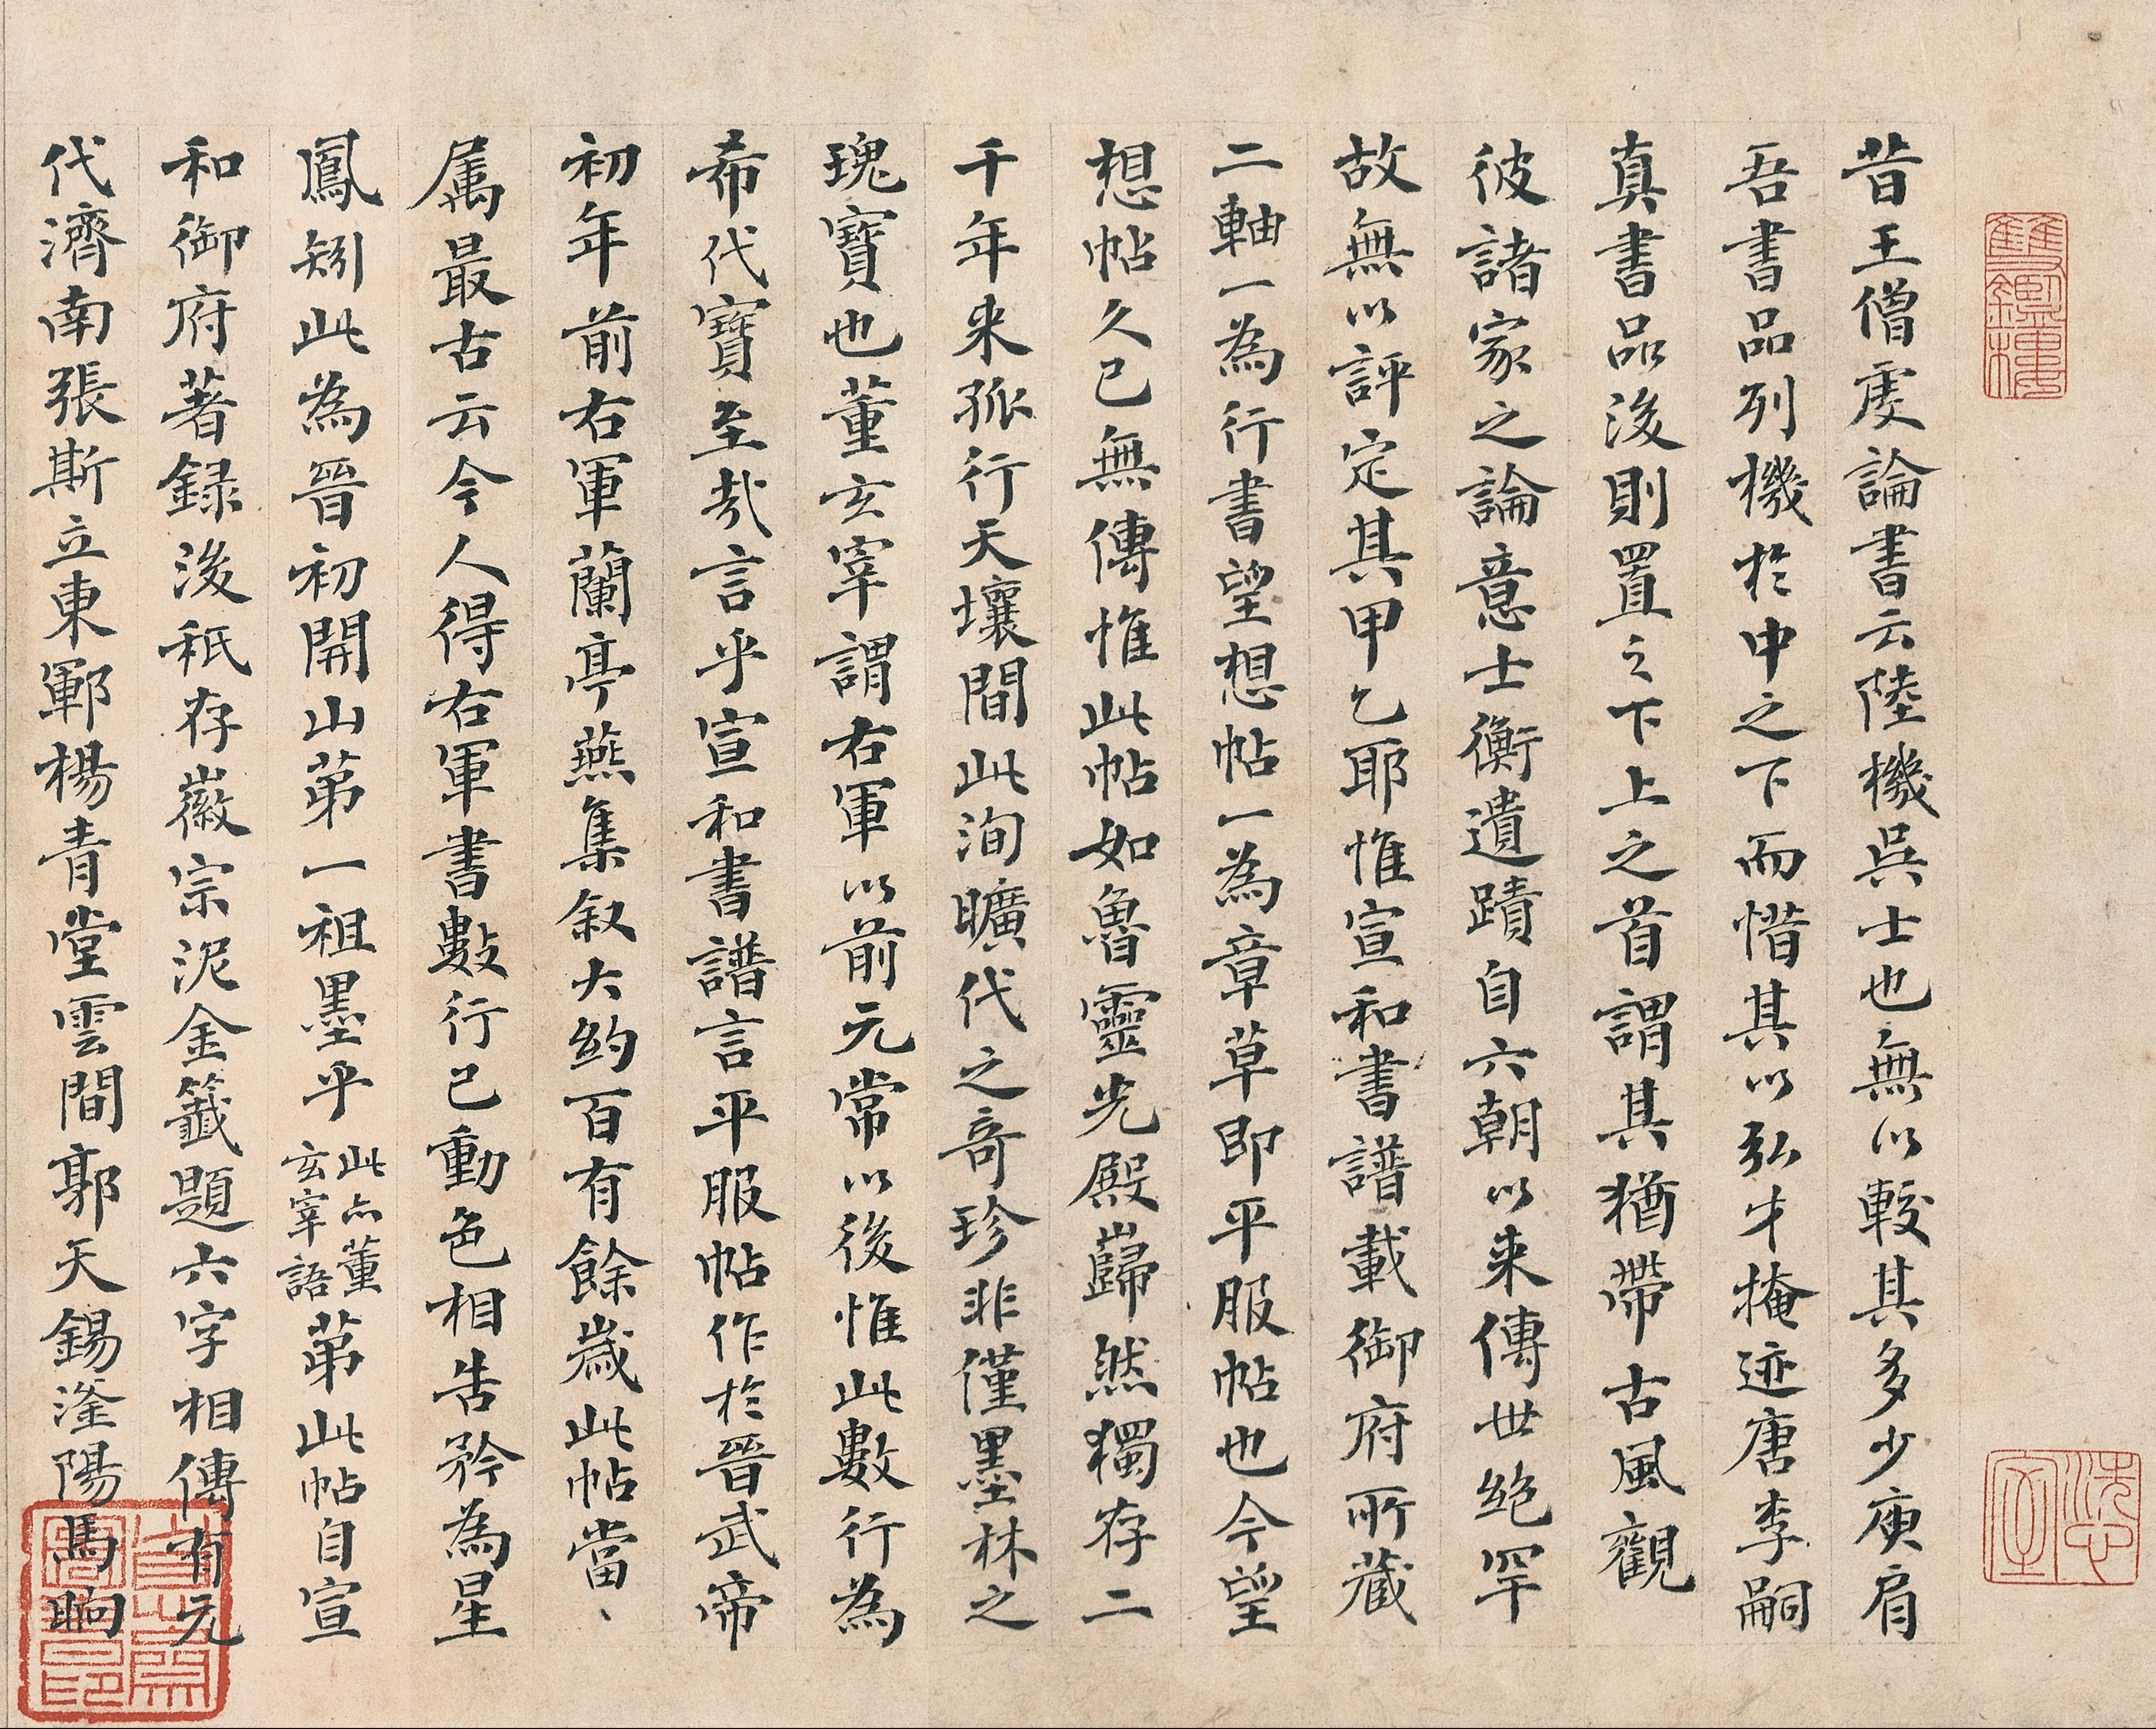 昔王僧虔論書云陸機吳士也無以較其多少庾肩
吾書品列機於中之下而惜其以弘才掩迹唐李嗣
真書品後則置之下上之首謂其猶帶古風觀
彼諸家之論意士衡遺蹟自六朝以来傳世絶罕
故無以評定其甲乙耶惟宣和書譜載御府所藏
二軸一為行書望想帖一為章草即平服帖也今望
想帖久已無傳惟此帖如魯靈光殿巋然獨存二
千年来孤行天壤間此洵曠代之奇珍非僅墨林之
瑰寶也董玄宰謂右軍以前元常以後惟此數行為
希代寶至哉言乎宣和書譜言平服帖作於晉武帝
初年前右軍蘭亭燕集叙大約百有餘歲此帖當、
属最古云今人得右軍書數行已動色相告矜為星
鳳矧此為晉初開山第一祖墨乎此亦董玄宰語第此帖自宣
和御府著録後秖存徽宗泥金籤題六字相傳有元
代濟南張斯立東鄆楊青堂雲間郭天錫滏陽馬晌
雙鑑樓